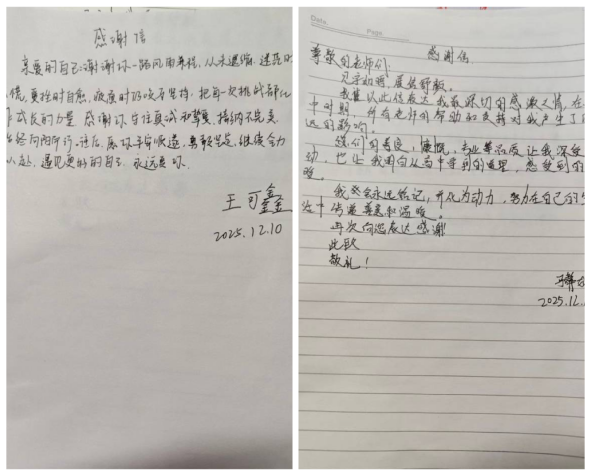 感谢信
亲爱的自己:谢谢你一路风雨兼程,从未退缩,迷茫时
慌,更核时自愈,疲惫时仍咬牙坚持,把每一次挑战都化
作成长的力量 感谢你守住真诚和挚爱,接纳不完美,
始终向阳所行。往后,愿你平安顺遂,勇敢坚定,继续全力
以赴,遇见更好的自己,永远爱你。
王可鑫
2025.12.10
Date. Page.
感谢信
尊敬的老师们:
见字如晤,展信舒颜。
我谨以此信表达我最深切的感激之情,在
中时期,所有老师的帮助和支持对我产生了
远的影响。
您们的善良,慷慨,专业等品质让我深受
动,也让我明白从而中学到的道理,感受到的
暖。
我会永远铭记,并化为动力,努力在自己的
中传递善意和温暖。
再次向您表达感谢
此致
敬礼!
2025.12.